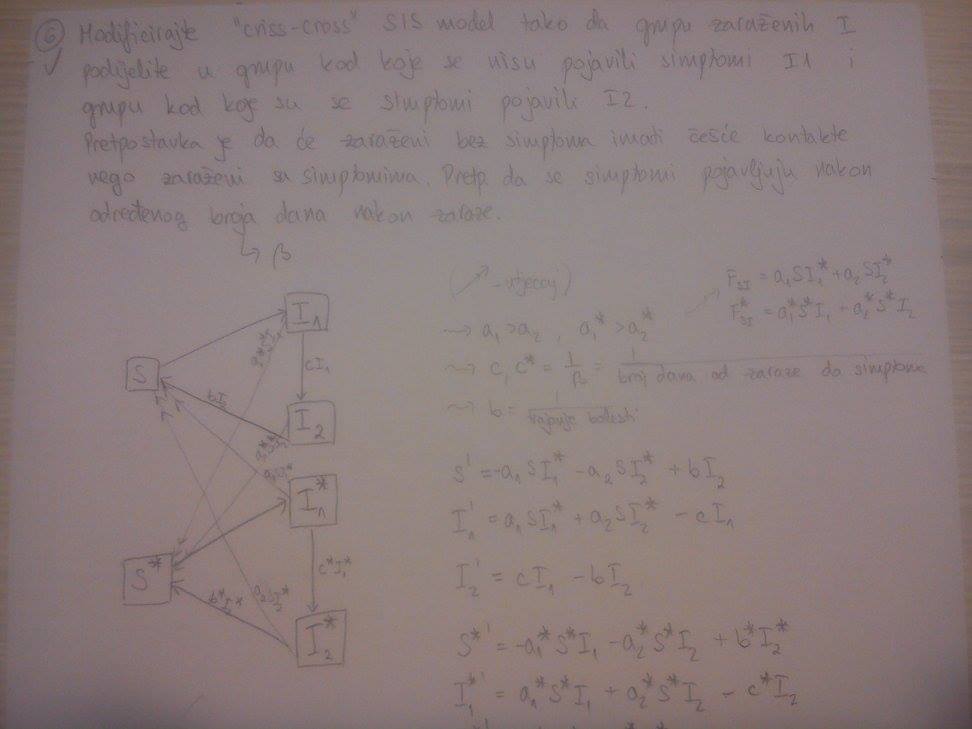 6 Modificirajte "criss-cross" SIS model tako da grupu zaraženih I
podijelite u grupu kod koje se nisu pojavili simptomi I1 i
grupu kod koje su se simptomi pojavili I2.
Pretpostavka je da će zaraženi bez simptoma imati češće kontakte
nego zaraženi sa simptomima. Pretp. da se simptomi pojavljuju nakon
određenog broja dana nakon zaraze.
↳ β
(↗ - utjecaj)
F_SI = a₁SI₁* + a₂SI₂*
F*_SI = a₁*S*I₁ + a₂*S*I₂
⇝ a₁ > a₂ , a₁* > a₂*
⇝ c, c* = 1/β = 1/broj dana od zaraze do simptoma
⇝ b = 1/trajanje bolesti
I₁
S
cI₁
bI₂
I₂
I₁*
S*
c*I₁*
b*I₂*
a₂SI₂*
I₂*
S' = -a₁SI₁* - a₂SI₂* + bI₂
I₁' = a₁SI₁* + a₂SI₂* - cI₁
I₂' = cI₁ - bI₂
S*' = -a₁*S*I₁ - a₂*S*I₂ + b*I₂*
I₁*' = a₁*S*I₁ + a₂*S*I₂ - c*I₂